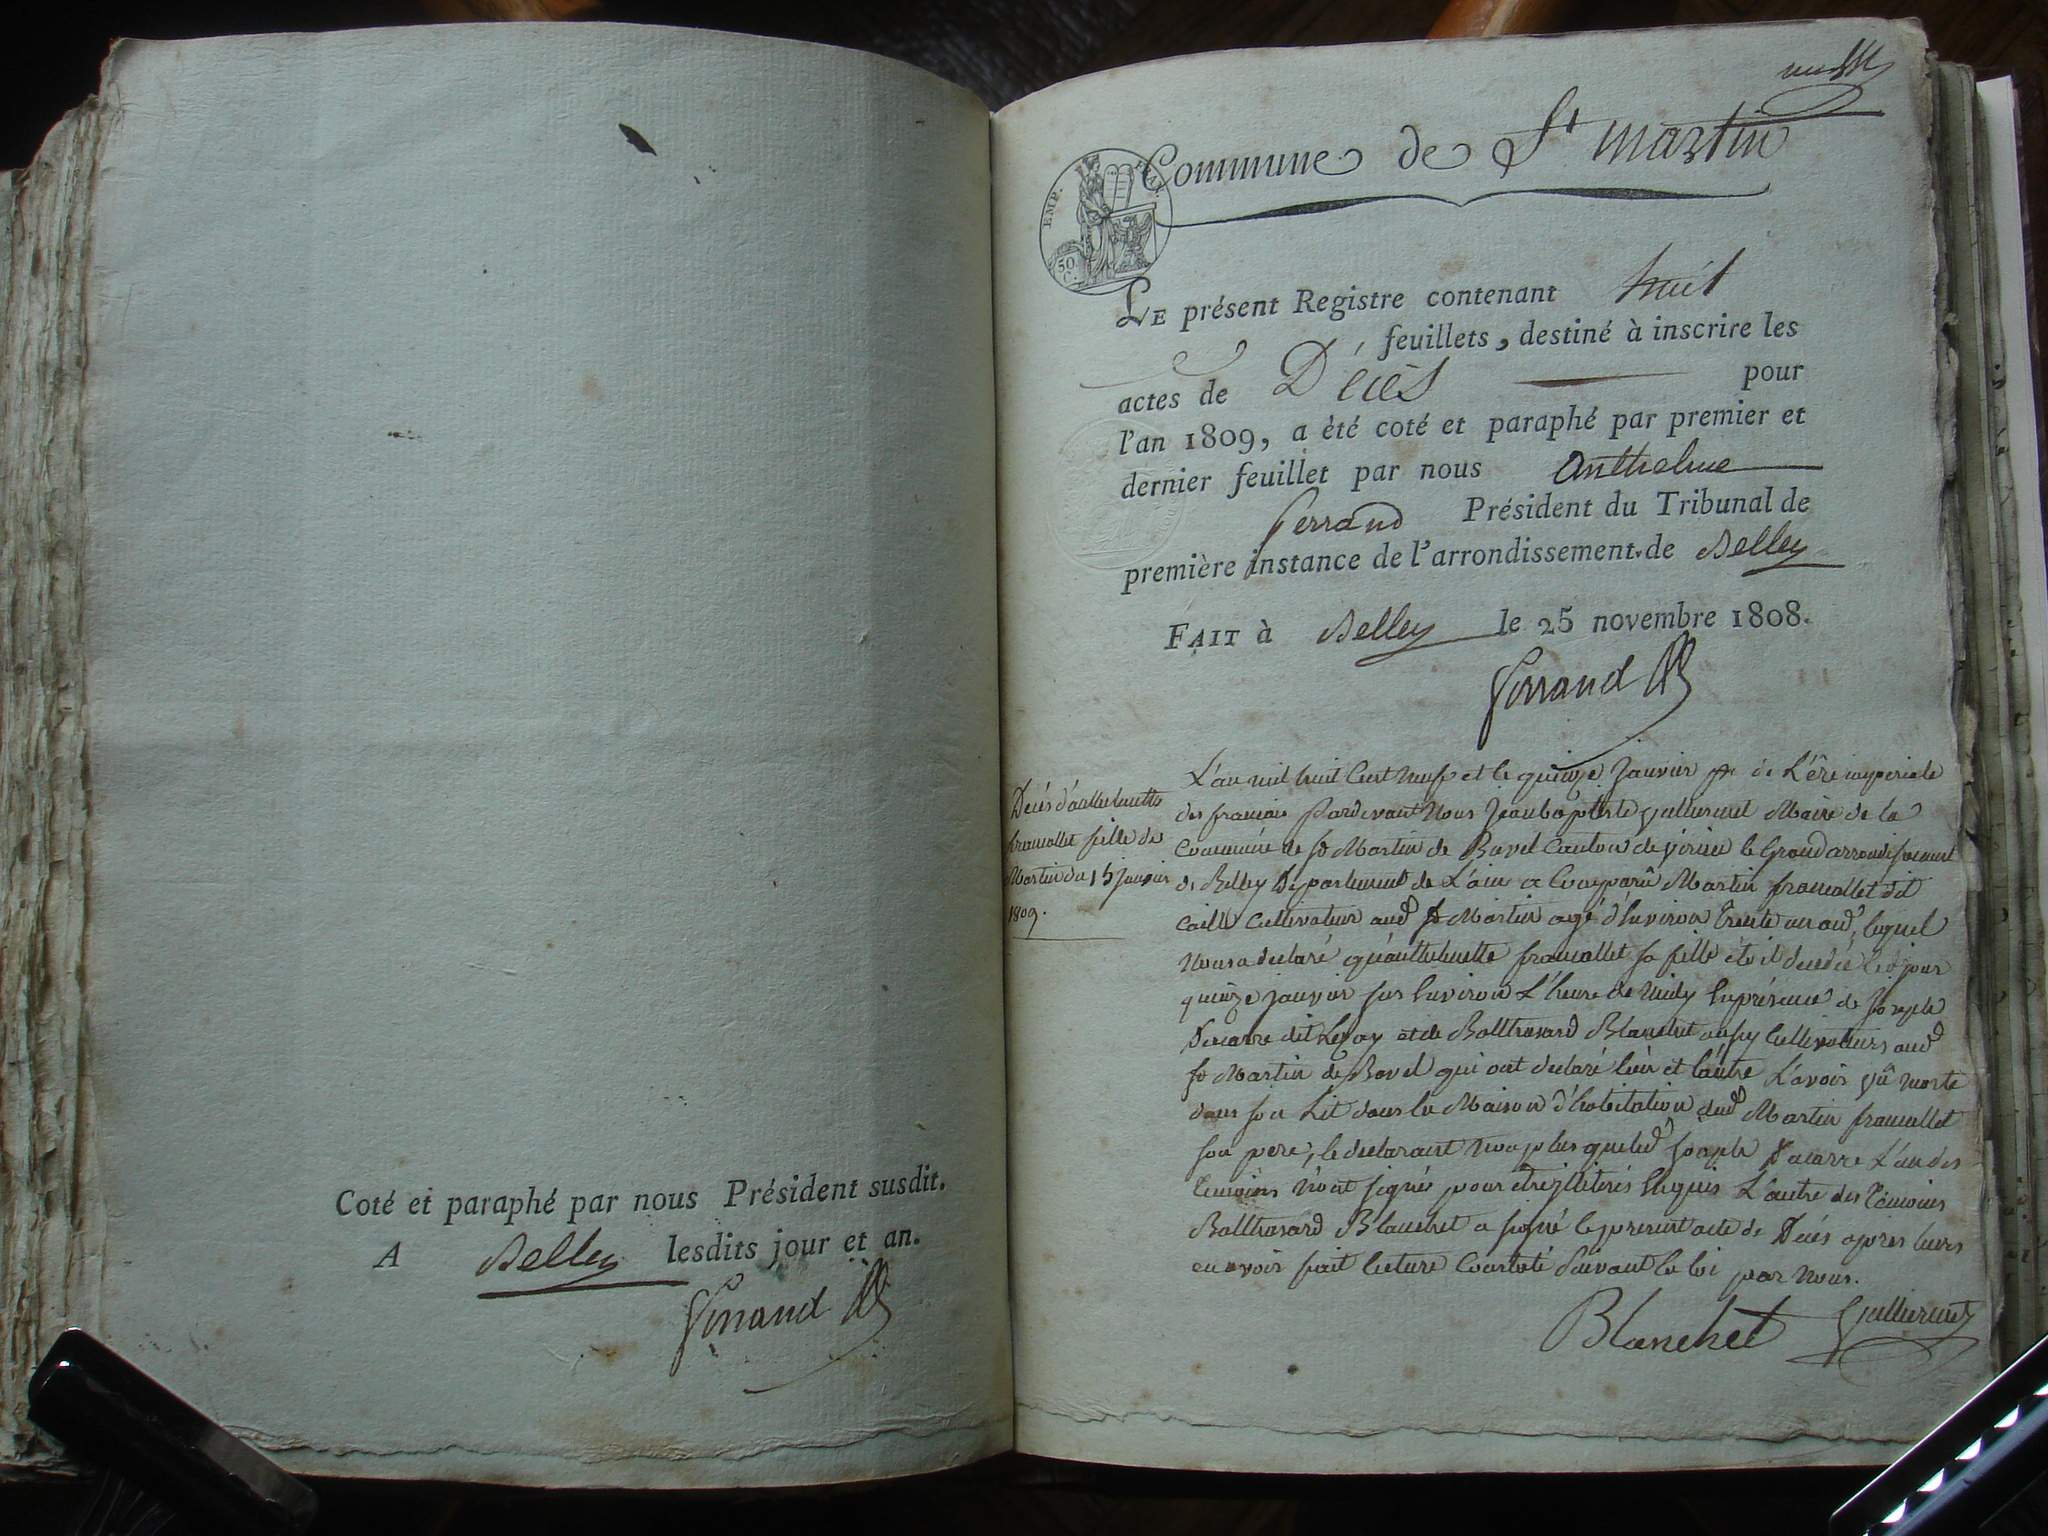 Coté et paraphé par nous Président susdit.
A Belley lesdits jour et an.
Ferrand
Commune de St martin
EMP.
50 C.
LE présent Registre contenant huit
feuillets, destiné à inscrire les
actes de Décès pour
l'an 1809, a été coté et paraphé par premier et
dernier feuillet par nous Anthelme
ferrand Président du Tribunal de
première instance de l'arrondissement de Belley
FAIT à Belley le 25 novembre 1808.
Ferrand
Décés d'anthelmette
francallet fille de
Martin du 15 janvier
1809.
L'an mil huit Cent Neuf et le quinze Janvier de L'êre imperiale
des francais Pardevant Nous Jean baptiste Maire de la
Commune de st Martin de Bavel Canton de virieu le Grand arrondissement
de Belley Département de L'ain a Comparû Martin francallet dit
caille Cultivateur aud st Martin agé d'Environ trente un ans, lequel
Nous a déclaré qu'anthelmette francallet sa fille étoit decedée led jour
quinze janvier sur Environ L'heure de Midy En présence de Joseph
dit et de Balthazard Blanchet aussy Cultivateurs aud
st Martin de Bavel qui ont declaré l'un et l'autre L'avoir vû morte
dans son Lit dans la Maison d'habitation dud Martin francallet
son pere, le declarant non plus que led Joseph L'un des
temoins n'ont signés pour être illiterés Enquis L'autre des temoins
Balthazard Blanchet a signé le present acte de Décés apres leurs
en avoir fait lecture Constaté suivant la loi par Nous.
Blanchet